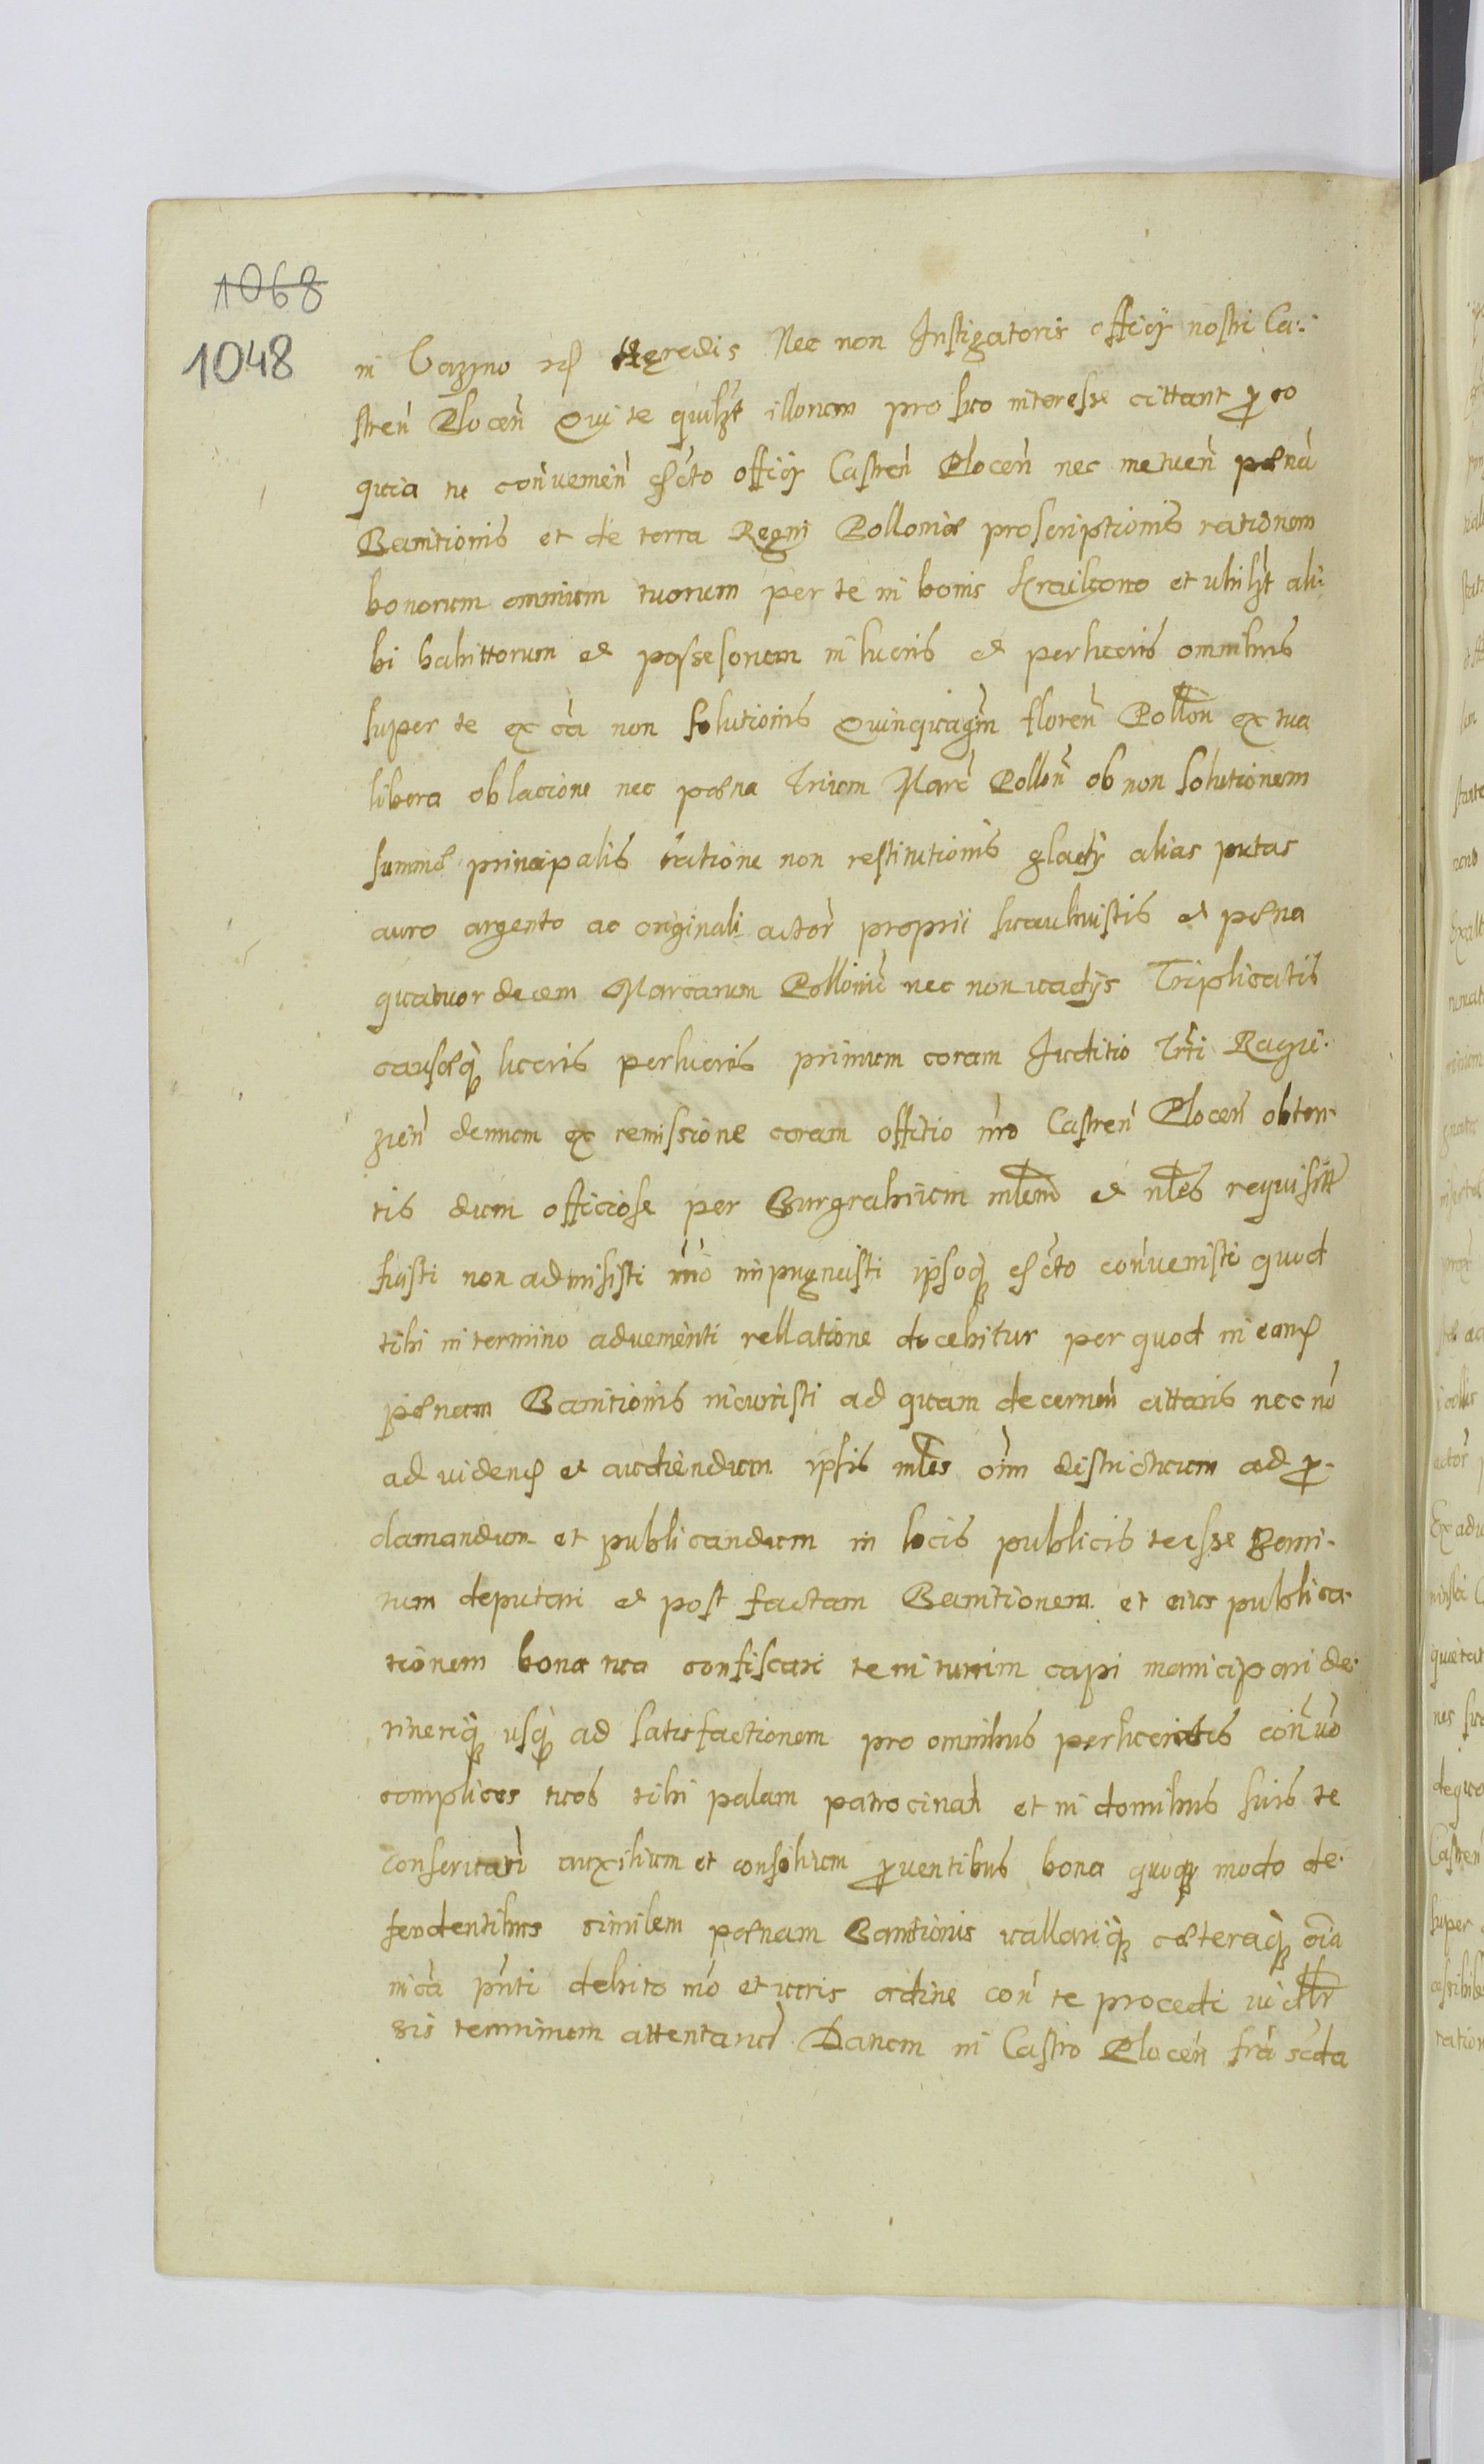 1068
1048
in Gazyno Hęredis Nec non Instigatoris officij nostri Ca:
stren̄ Plocen̄ Qui te quilz̄t illorum pro suo interesse cittant ꝓ eo
quia tu con̄uenien̄ officij Castren̄ Plocen̄ nec metuen̄ pœnā
Banitionis et de terra Regni Polloniæ proscriptionis rationem
bonorum omnium tuorum per te in bonis et ubilz̄t ali:
bi habittorum et possesorum in lucris et perlucris omnibus
super te ex cā non solutionis Quinquagin̄ floren̄ Pollon̄ ex tua
libera oblacione nec pœna trium Marc̄ Pollon̄ ob non solutionem
summæ principalis ratione non restitutionis gladij alias
auro argento ac originali actor̄ proprii et pœna
quatuordecem Marcarum Pollonic̄ nec non uadijs Triplicatis
causæq̨ lucris perlucris primum coram Juditio Trr̄i Raguÿ.
zien̄ demum ex remissione coram offitio nr̄o Castren̄ Plocen̄ obten.
tis dum officiose per Burgrabium mlem̄ et nl̄es requisitt
fuisti non admisisti im̄o inpugnasti ipsoq̨ con̄uenisti quod
tibi in termino aduenienti rellatione docebitur per quod in eam
pœnam Banitionis incurristi ad quam decernen̄ cittaris nec nō
ad uiden et audiendum ipsis ml̄es on̄m districtuum ad ꝓ.
clamandum et publicandum in locis publicis te esse Bani.
tum deputari et post factam Banitionem et eius publica.
tionem bona tua confiscari te in turrim capi mancipari de.
tineriq̨ usq̨ ad satisfactionem pro omnibus perlucratis con̄uō
complices tuos tibi palam patrocinan̄ et in domibus suis te
conseruan̄ auxilium et consilium ꝓuentibus bona quoq̨ modo de.
fendentibus similem pœnam Banitionis uallariq̨ cæteraq̨ oīa
in cā pn̄ti debito mō et iuris ordine con̄ te procedi
sis terminum attentaturus Datum in Castro Plocen̄ fr̄a sc̄da